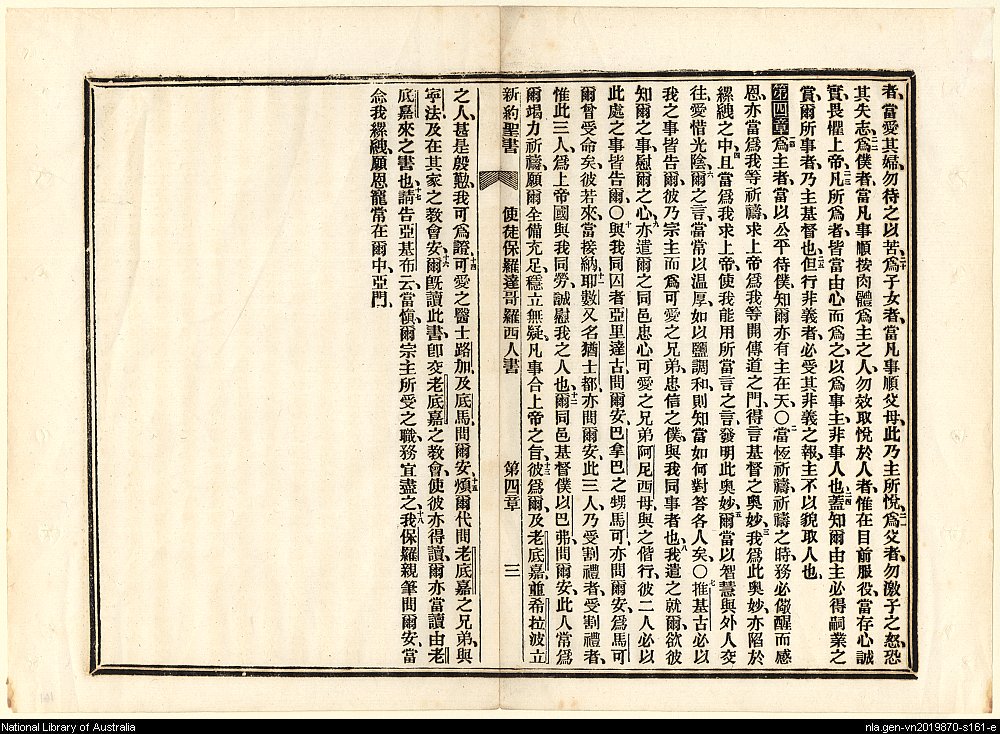 者、當愛其婦、勿待之以苦、二十爲子女者、當凡事順父母、此乃主所悅、二一爲父者、勿激子之怒、恐
其失志、二二爲僕者、當凡事順按肉體爲主之人、勿效取悅於人者、惟在目前服役、當存心誠
實、畏懼上帝、二三凡所爲者、皆當由心而爲之、以爲事主、非事人也、二四蓋知爾由主必得嗣業之
賞、爾所事者、乃主基督也、二五但行非義者、必受其非義之報、主不以貌取人也、
第四章 一爲主者、當以公平待僕、知爾亦有主在天、〇二當恆祈禱、祈禱之時、務必儆醒而感
恩、三亦當爲我等祈禱、求上帝爲我等開傳道之門、得言基督之奧妙、我爲此奧妙、亦陷於
縲絏之中、四且當爲我求上帝、使我能用所當言之言、發明此奧妙、五爾當以智慧與外人交
往、愛惜光陰、六爾之言、當常以溫厚、如以鹽調和、則知當如何對答各人矣、〇七推基古必以
我之事皆告爾、彼乃宗主而爲可愛之兄弟、忠信之僕、與我同事者也、八我遣之就爾、欲彼
知爾之事、慰爾之心、九亦遣爾之同邑忠心可愛之兄弟阿尼西母、與之偕行、彼二人必以
此處之事皆告爾、〇十與我同囚者亞里達古問爾安、巴拿巴之甥馬可、亦問爾安、爲馬可
爾曾受命矣、彼若來、當接納耶數又名猶士都、亦問爾安、此三人乃受割禮者、受割禮者、
惟此三人、爲上帝國與我同勞、誠慰我之人也、十二爾同邑基督僕以巴弗問爾安、此人常爲
爾竭力祈禱、願爾全備充足、穩立無疑、凡事合上帝之旨、十三彼爲爾及老底嘉並希拉波立
新約聖書 使徒保羅達哥羅西人書 第四章 三
之人、甚是殷勤、我可爲證、十四可愛之醫士路加、及底馬、問爾安、十五煩爾代問老底嘉之兄弟、與
寧法、及在其家之教會安、十六爾旣讀此書、卽交老底嘉之教會、使彼亦得讀、爾亦當讀由老
底嘉來之書也、十七請告亞基布云、當愼爾宗主所受之職務、宜盡之、十八我保羅親筆問爾安、當
念我縲絏、願恩寵常在爾中、亞門、
National Library of Australia
nla.gen-vn2019870-s161-e